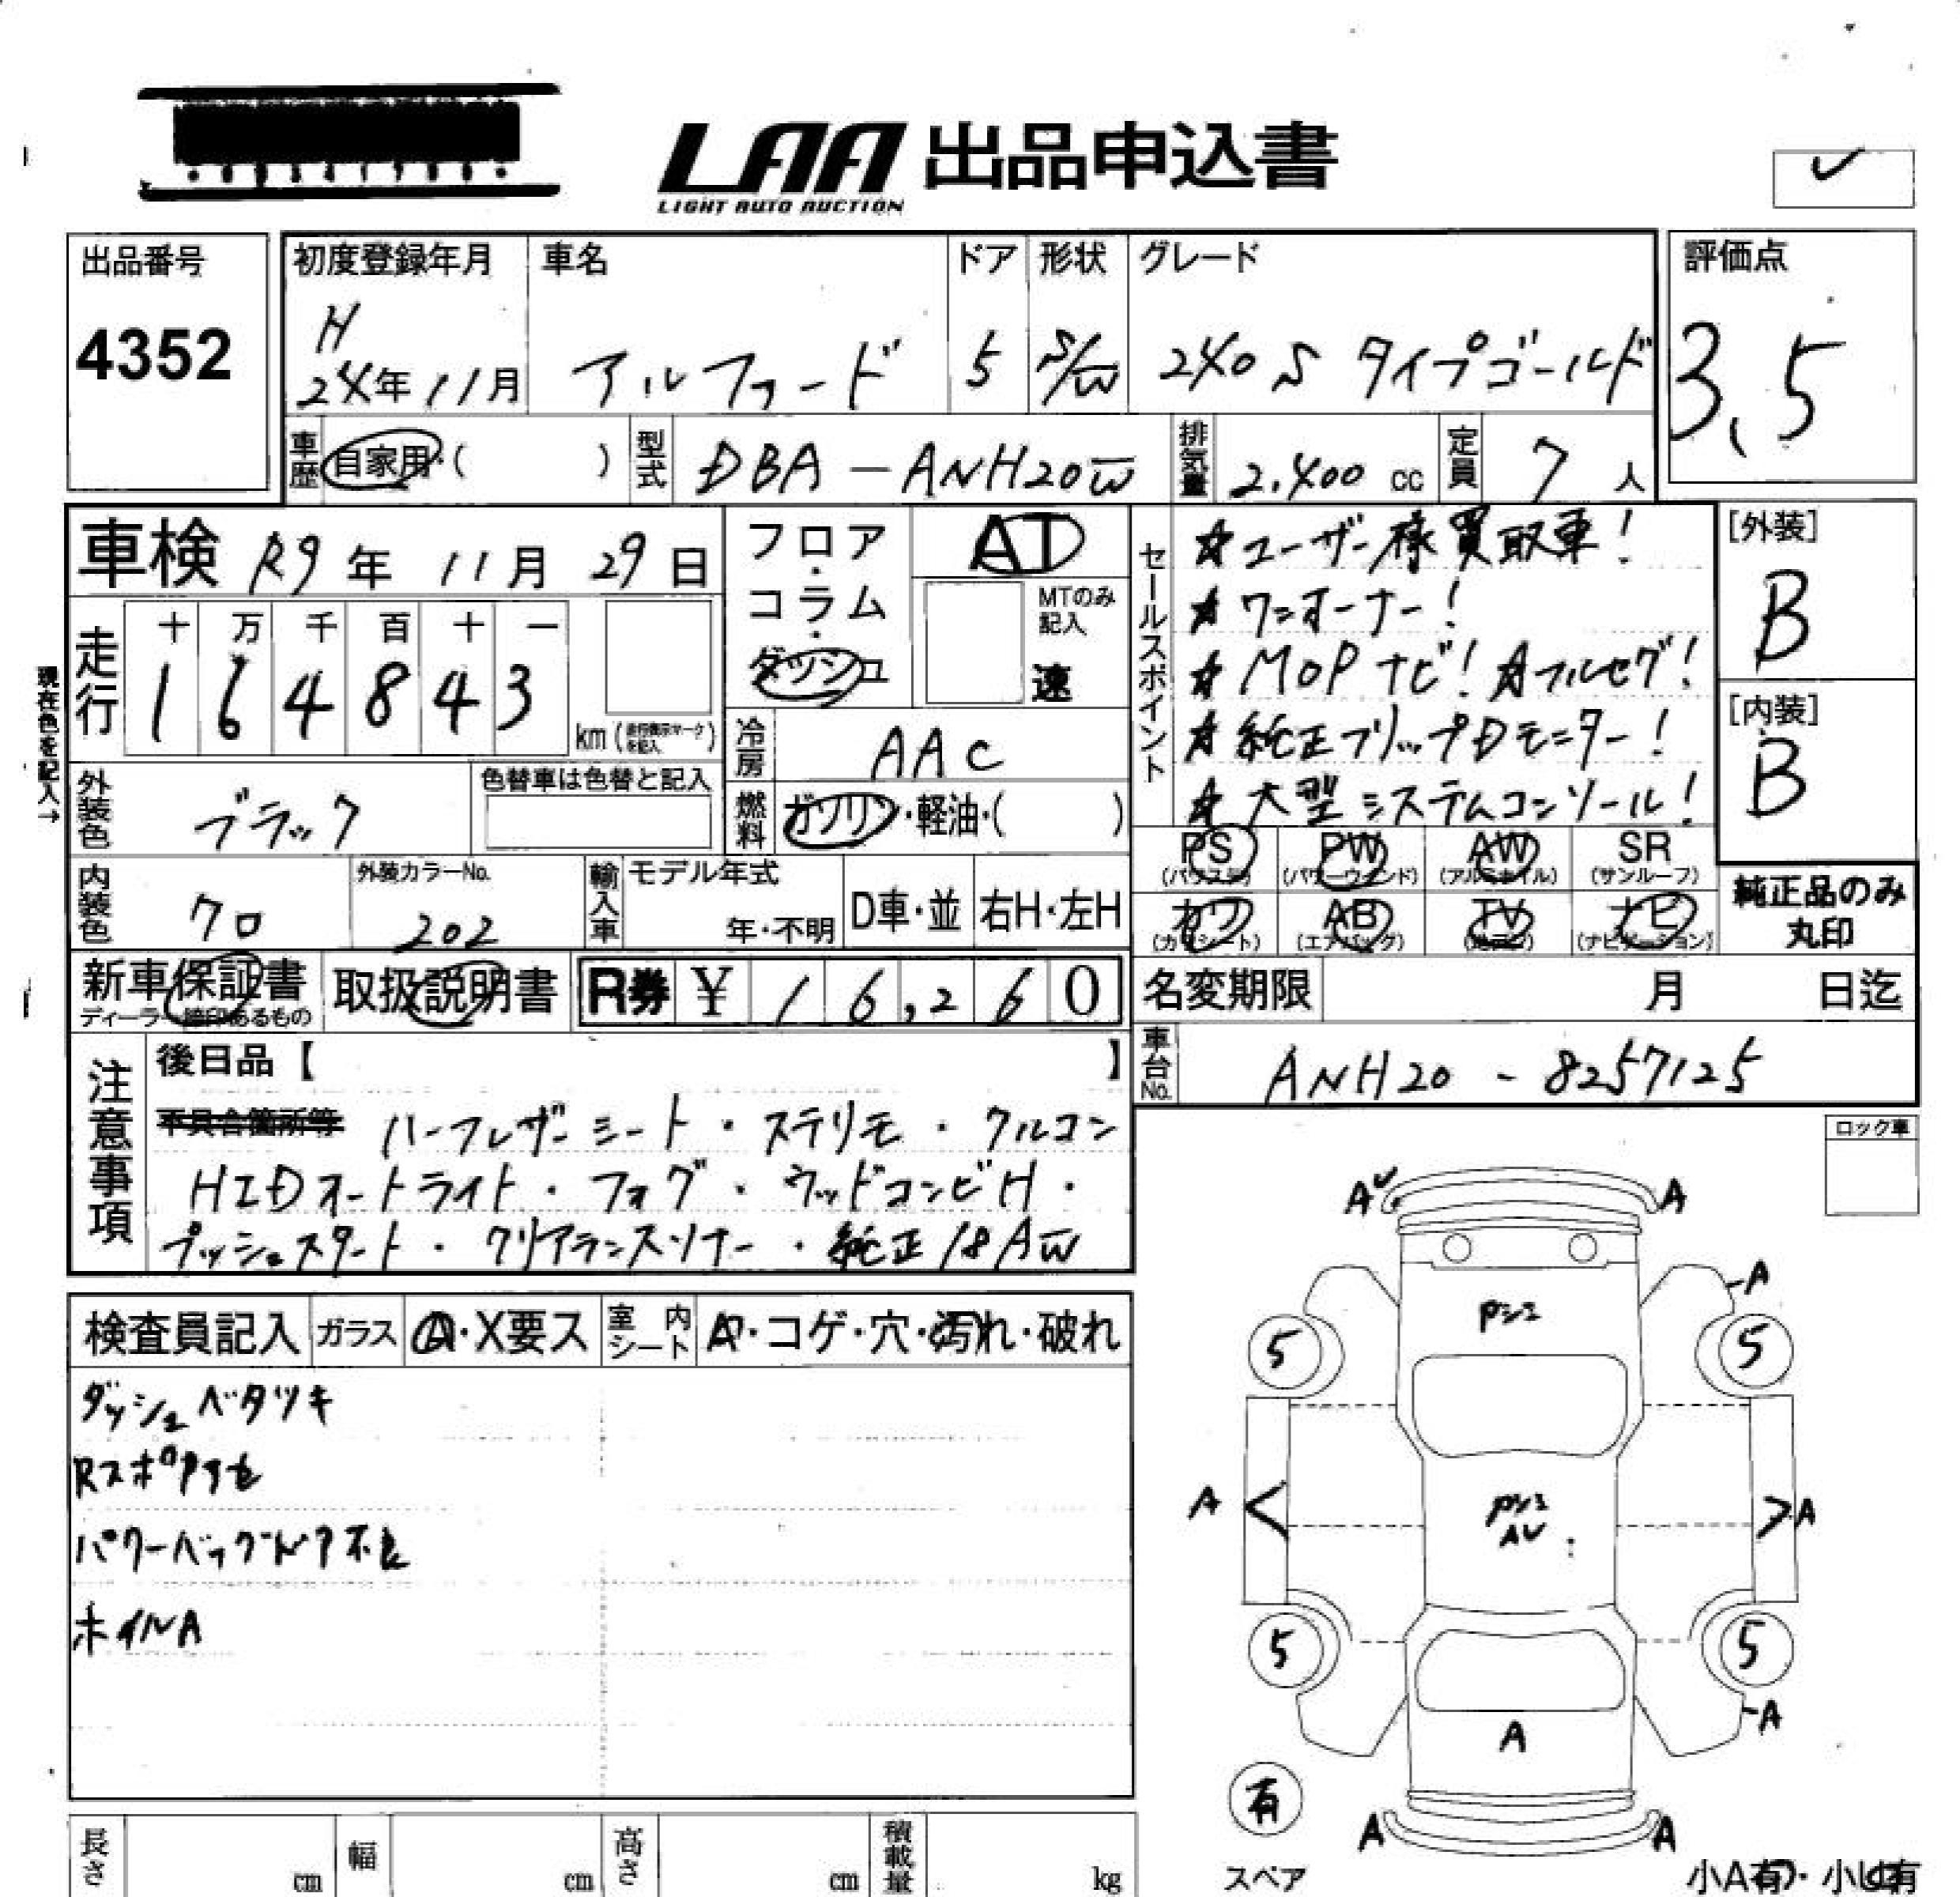 LAA 出品申込書
LIGHT AUTO AUCTION
出品番号
4352
初度登録年月
H
24年11月
車名
アルファード
ドア
5
形状
S/W
グレード
240S タイプゴールド
評価点
3.5
車歴
自家用・( )
型式
DBA-ANH20W
排気量
2,400 cc
定員
7 人
車検 R9年 11月 29日
フロア・コラム・ダッシュ
AT
MTのみ記入
速
セールスポイント
☆ユーザー様買取車!
☆ワンオーナー!
☆MOPナビ!☆フルセグ!
☆純正フリップDモニター!
☆大型システムコンソール!
[外装]
B
[内装]
B
現在色を記入→
走行
十 万 千 百 十 一
1 6 4 8 4 3
km
冷房
AAC
燃料
ガソリン・軽油・( )
外装色
ブラック
色替車は色替と記入
PS
(パワステ)
PW
(パワーウインド)
AW
(アルミホイル)
SR
(サンルーフ)
カワ
(カワシート)
AB
(エアバッグ)
TV
ナビ
(ナビゲーション)
純正品のみ
丸印
内装色
クロ
外装カラーNo.
202
輸入車
モデル年式
年・不明
D車・並
右H・左H
新車保証書
ディーラー捺印あるもの
取扱説明書
R券 ¥ 16,260
名変期限 月 日迄
車台No.
ANH20-8257125
注意事項
後日品【 】
不具合箇所等
ハーフレザーシート・ステリモ・クルコン
HIDオートライト・フォグ・ウッドコンビH・
プッシュスタート・クリアランスソナー・純正18AW
ロック車
検査員記入
ガラス
A・X要ス
室内シート
A・コゲ・穴・汚れ・破れ
ダッシュベタツキ
Rスポ
パワーバックドア不良
ホイルA
A
A
A
Pシミ
5
5
A
Pシミ
AU
A
5
5
A
A
有
スペア
A
A
小A有・小U有
長さ cm
幅 cm
高さ cm
積載量 kg